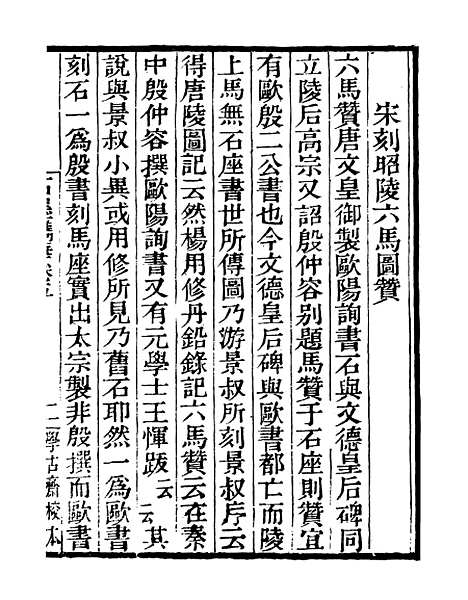 宋刻昭陵六馬圖贊
六馬贊唐文皇御製歐陽詢書石與文德皇后碑同
立陵后高宗又詔殷仲容别題馬贊于石座則贊宜
有歐殷二公書也今文德皇后碑與歐書都亡而陵
上馬無石座書世所傳圖乃游景叔所刻景叔序云
得唐陵圖記云然楊用修丹鉛錄記六馬贊云在秦
中殷仲容撰歐陽詢書又有元學士王惲跋云云其
說與景叔小異或用修所見乃舊石耶然一為歐書
刻石一為殷書刻馬座實出太宗製非殷撰而歐書
二學古齋校本